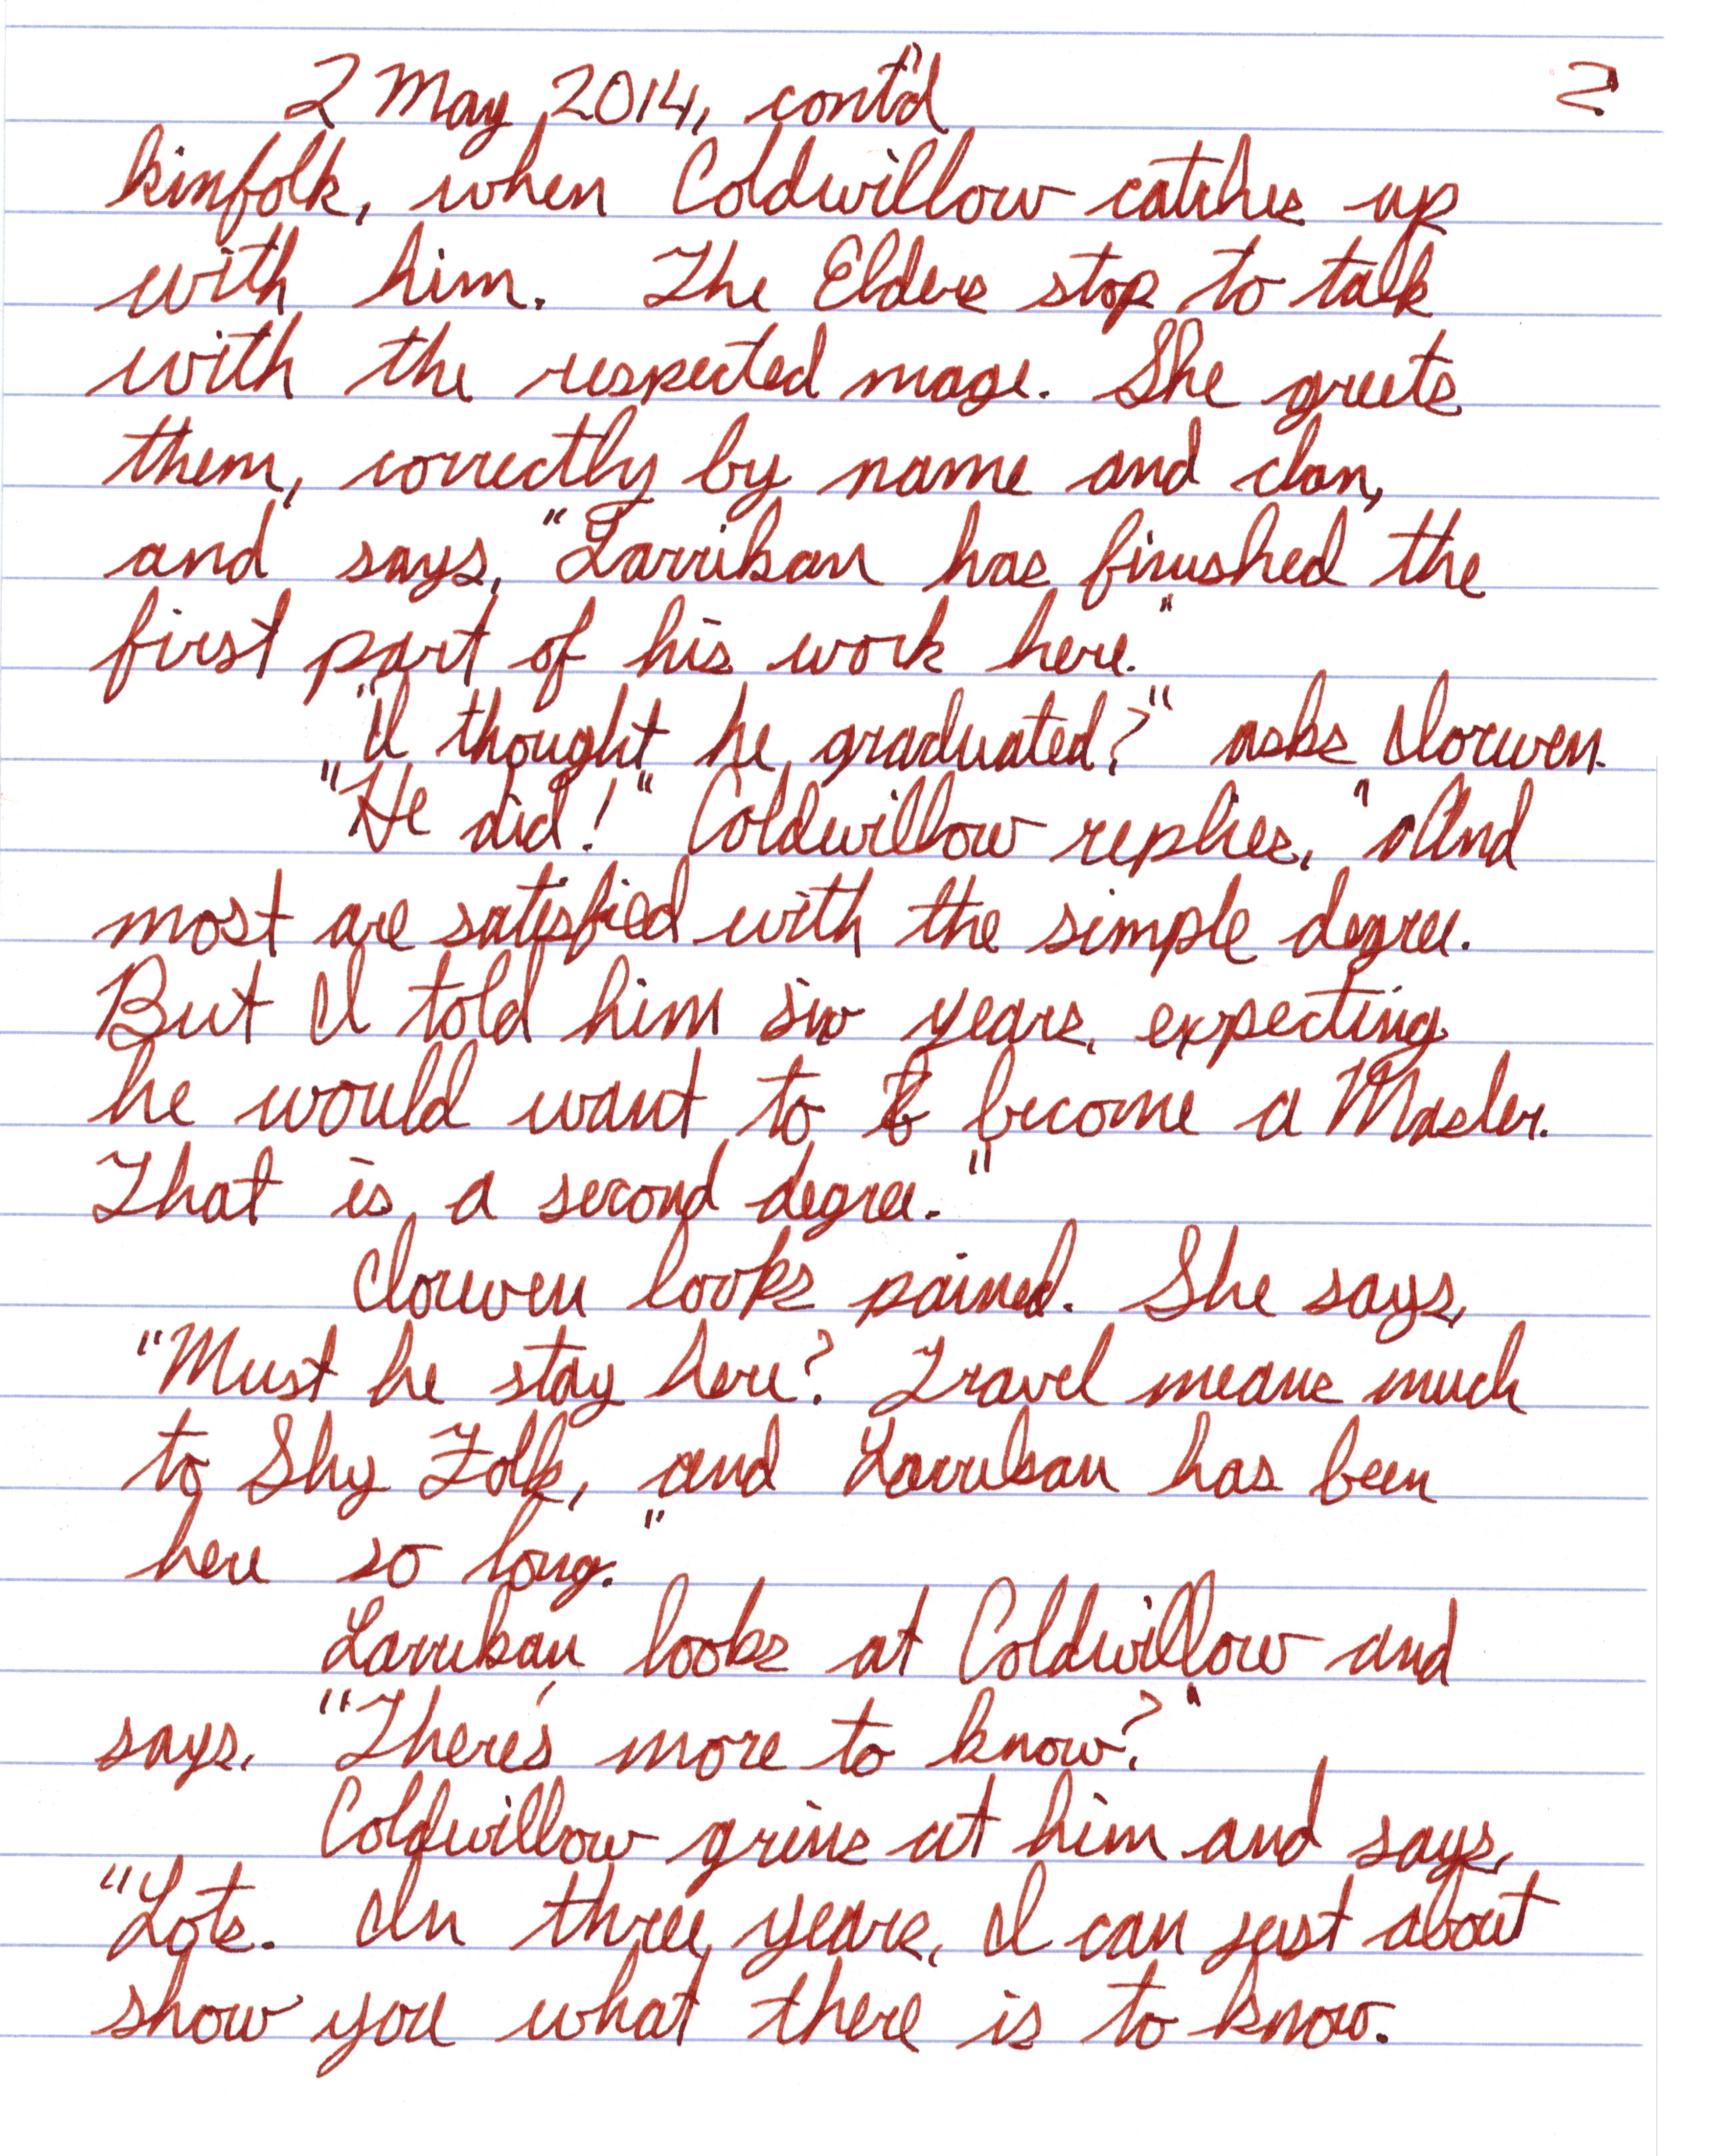 2 May 2014, cont'd 2
kinfolk, when Coldwillow catches up
with him. The Elders stop to talk
with the respected mage. She greets
them, correctly by name and clan,
and says, "Larrikan has finished the
first part of his work here."
"I thought he graduated?" asks Iorwen.
"He did!" Coldwillow replies, "And
most are satisfied with the simple degree.
But I told him six years, expecting
he would want to b become a Master.
That is a second degree."
Iorwen looks pained. She says,
"Must he stay here? Travel means much
to Shy Folk, and Larrikan has been
here so long."
Larrikan looks at Coldwillow and
says, "There's more to know?"
Coldwillow grins at him and says,
"Lots. In three years, I can just about
show you what there is to know.